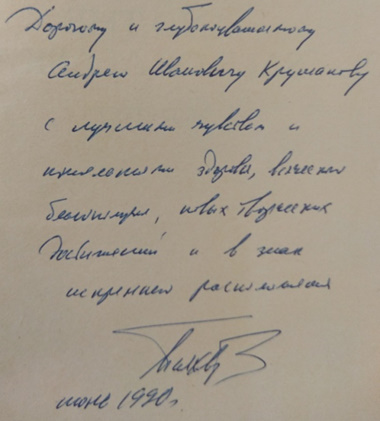 Дорогому и глубокоуважаемому
Андрею Ивановичу
с лучшими чувствами и
пожеланиями здоровья, всяческого
благополучия, новых творческих
достижений и в знак
искреннего расположения
1990 г.